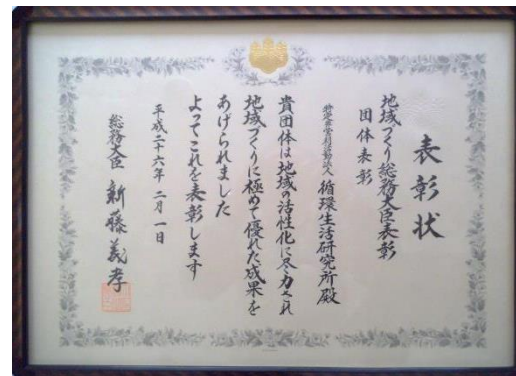 表彰状
地域づくり総務大臣表彰
団体表彰
特定非営利活動法人 循環生活研究所殿
貴団体は地域の活性化に尽力され
地域づくりに極めて優れた成果を
あげられました
よってこれを表彰します
平成二十六年 二月一日
総務大臣 新藤義孝